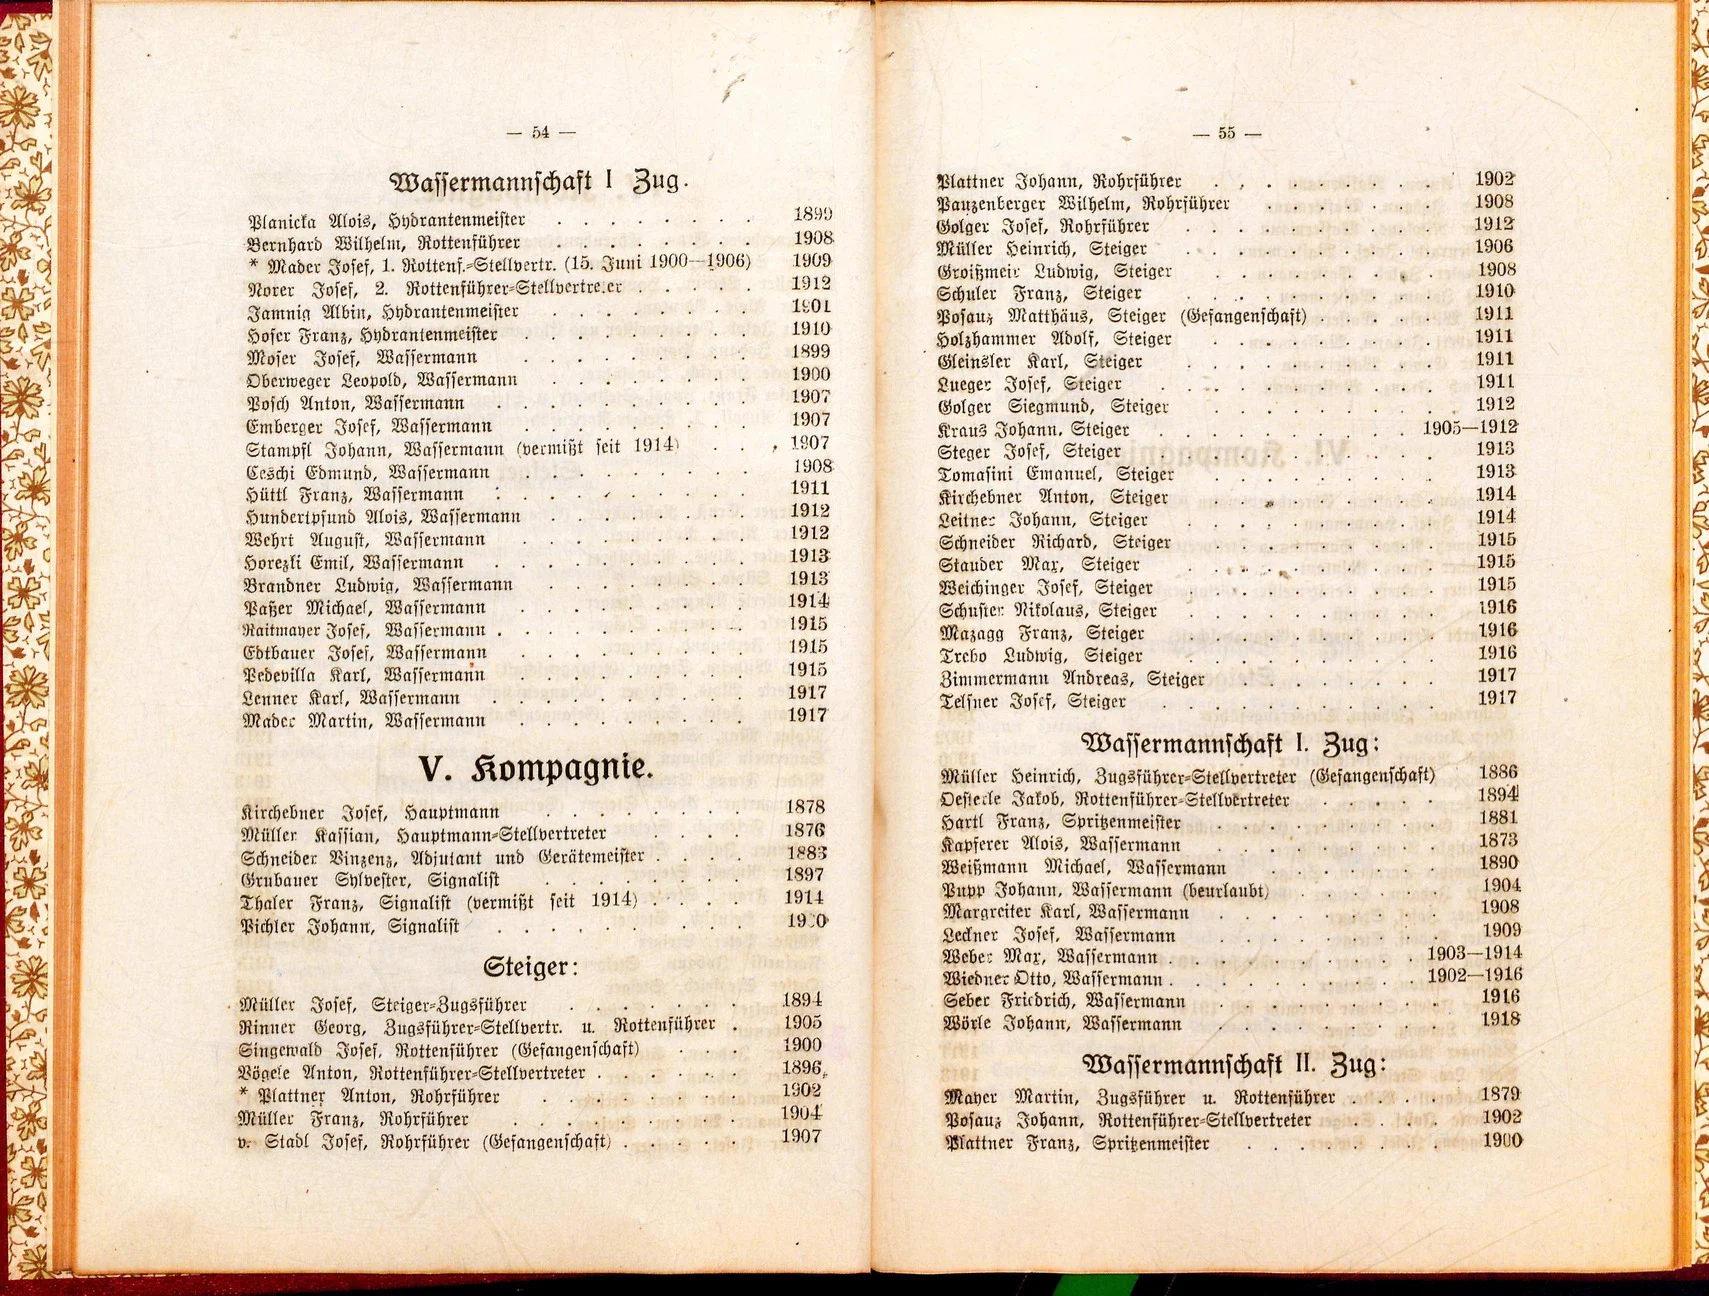 — 54 —
Wassermannschaft I Zug.
Planicka Alois, Hydrantenmeister . . . . . . . . 1899
Bernhard Wilhelm, Rottenführer . . . . . . . . 1908
* Mader Josef, 1. Rottenf.-Stellvertr. (15. Juni 1900—1906) 1909
Norer Josef, 2. Rottenführer-Stellvertreter . . . . 1912
Jamnig Albin, Hydrantenmeister . . . . . . . . 1901
Hofer Franz, Hydrantenmeister . . . . . . . . 1910
Moser Josef, Wassermann . . . . . . . . 1899
Oberweger Leopold, Wassermann . . . . . . . . 1900
Posch Anton, Wassermann . . . . . . . . 1907
Emberger Josef, Wassermann . . . . . . . . 1907
Stampfl Johann, Wassermann (vermißt seit 1914) . . . 1907
Ceschi Edmund, Wassermann . . . . . . . . 1908
Hüttl Franz, Wassermann . . . . . . . . 1911
Hundertpfund Alois, Wassermann . . . . . . . . 1912
Wehrt August, Wassermann . . . . . . . . 1912
Horezli Emil, Wassermann . . . . . . . . 1913
Brandner Ludwig, Wassermann . . . . . . . . 1913
Paßer Michael, Wassermann . . . . . . . . 1914
Raitmayer Josef, Wassermann . . . . . . . . 1915
Edtbauer Josef, Wassermann . . . . . . . . 1915
Pedevilla Karl, Wassermann . . . . . . . . 1915
Lenner Karl, Wassermann . . . . . . . . 1917
Mader Martin, Wassermann . . . . . . . . 1917
V. Kompagnie.
Kirchebner Josef, Hauptmann . . . . . . . . 1878
Müller Kassian, Hauptmann-Stellvertreter . . . . . 1876
Schneider Vinzenz, Adjutant und Gerätemeister . . . . 1883
Grubauer Sylvester, Signalist . . . . . . . . 1897
Thaler Franz, Signalist (vermißt seit 1914) . . . . 1914
Pichler Johann, Signalist . . . . . . . .
Steiger:
Müller Josef, Steiger-Zugsführer . . . . . . . 1894
Rinner Georg, Zugsführer-Stellvertr. u. Rottenführer . 1905
Singewald Josef, Rottenführer (Gefangenschaft) . . . 1900
Vögele Anton, Rottenführer-Stellvertreter . . . . . 1896
* Plattner Anton, Rohrführer . . . . . . . 1902
Müller Franz, Rohrführer . . . . . . . . 1904
v. Stadl Josef, Rohrführer (Gefangenschaft) . . . . . 1907
— 55 —
Plattner Johann, Rohrführer . . . . . . . . 1902
Pauzenberger Wilhelm, Rohrführer . . . . . . 1908
Golger Josef, Rohrführer . . . . . . . . 1912
Müller Heinrich, Steiger . . . . . . . . 1906
Groißmeir Ludwig, Steiger . . . . . . . . 1908
Schuler Franz, Steiger . . . . . . . . 1910
Posauz Matthäus, Steiger (Gefangenschaft) . . . . . 1911
Holzhammer Adolf, Steiger . . . . . . . . 1911
Gleinsler Karl, Steiger . . . . . . . . 1911
Lueger Josef, Steiger . . . . . . . . 1911
Golger Siegmund, Steiger . . . . . . . . 1912
Kraus Johann, Steiger . . . . . . . . 1905—1912
Steger Josef, Steiger . . . . . . . . 1913
Tomasini Emanuel, Steiger . . . . . . . . 1913
Kirchebner Anton, Steiger . . . . . . . . 1914
Leitner Johann, Steiger . . . . . . . . 1914
Schneider Richard, Steiger . . . . . . . . 1915
Stauder Max, Steiger . . . . . . . . 1915
Weichinger Josef, Steiger . . . . . . . . 1915
Schuster Nikolaus, Steiger . . . . . . . . 1916
Mazagg Franz, Steiger . . . . . . . . 1916
Trebo Ludwig, Steiger . . . . . . . . 1916
Zimmermann Andreas, Steiger . . . . . . . 1917
Telfner Josef, Steiger . . . . . . . . 1917
Wassermannschaft I. Zug:
Müller Heinrich, Zugsführer-Stellvertreter (Gefangenschaft) 1886
Oesterle Jakob, Rottenführer-Stellvertreter . . . . . 1894
Hartl Franz, Spritzenmeister . . . . . . . . 1881
Kapferer Alois, Wassermann . . . . . . . . 1873
Weißmann Michael, Wassermann . . . . . . . 1890
Pupp Johann, Wassermann (beurlaubt) . . . . . . 1904
Margreiter Karl, Wassermann . . . . . . . . 1908
Lechner Josef, Wassermann . . . . . . . . 1909
Weber Max, Wassermann . . . . . . . . 1903—1914
Wiedner Otto, Wassermann . . . . . . . . 1902—1916
Seber Friedrich, Wassermann . . . . . . . . 1916
Wörle Johann, Wassermann . . . . . . . . 1918
Wassermannschaft II. Zug:
Mayer Martin, Zugsführer u. Rottenführer . . . . 1879
Posauz Johann, Rottenführer-Stellvertreter . . . . 1902
Plattner Franz, Spritzenmeister . . . . . . . 1900